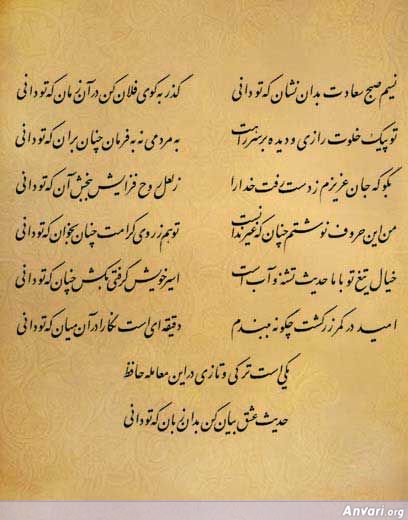 نسیم صبح سعادت بدان نشان که تو دانی گذر به کوی فلان کن در آن زمان که تو دانی
تو پیک خلوت رازی و دیده بر سر راهت به مردمی نه به فرمان چنان بران که تو دانی
بگو که جان عزیزم ز دست رفت خدا را ز لعل روح فزایش ببخش آن که تو دانی
من این حروف نوشتم چنان که غیر ندانست تو هم ز روی کرامت چنان بخوان که تو دانی
خیال تیغ تو با ما حدیث تشنه و آب است اسیر خویش گرفتی بکش چنان که تو دانی
امید در کمر زرکشت چگونه ببندم دقیقه ای است نگارا در آن میان که تو دانی
یکی است ترکی و تازی در این معامله حافظ
حدیث عشق بیان کن بدان زبان که تو دانی
Anvari.org